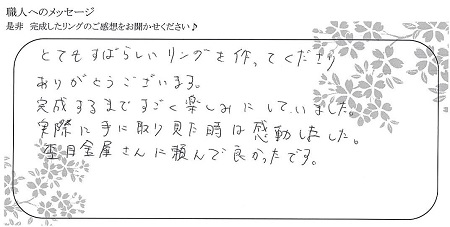 職人へのメッセージ
是非 完成したリングのご感想をお聞かせください♪
とてもすばらしいリングを作ってくださり
ありがとうございます。
完成するまですごく楽しみにしていました。
実際に手に取り見た時は感動しました。
杢目金屋さんに頼んで良かったです。